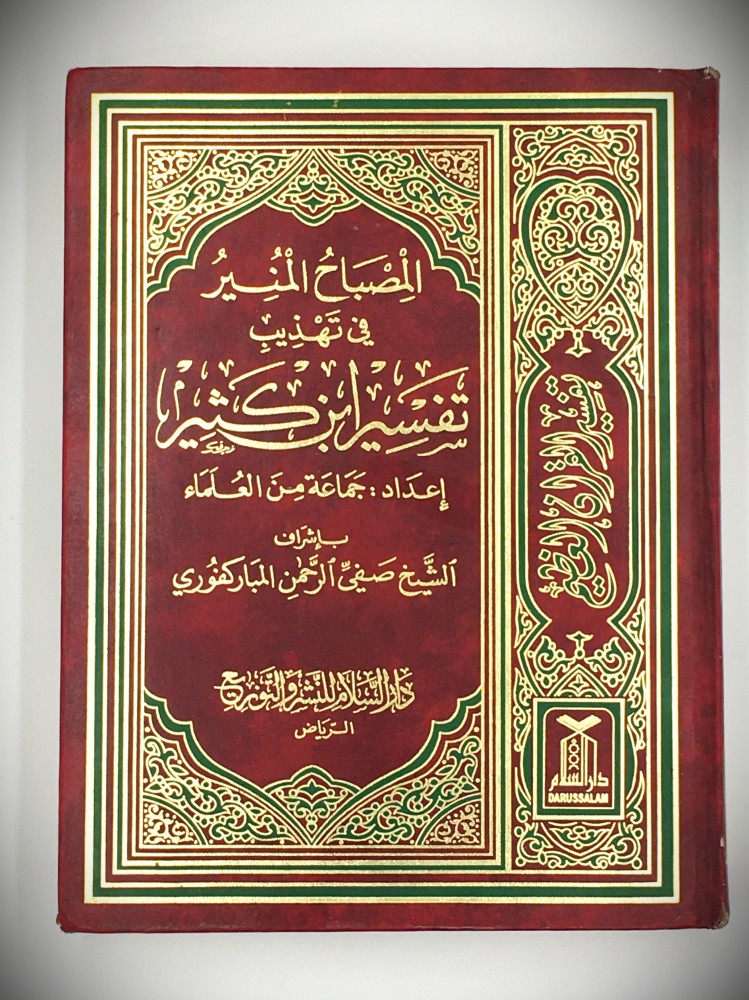 المِصْبَاحُ المُنِيرُ
في تَهْذِيبِ
تَفسِير ابن كَثِير
إعدَاد: جَمَاعَة مِنَ العُلَمَاء
بإشراف
الشَّيخ صَفيِّ الرَّحمٰنِ المباركفوري
دار السلام للنشر والتوزيع
الرياض
تفسير القرآن العظيم
دار السلام
DARUSSALAM